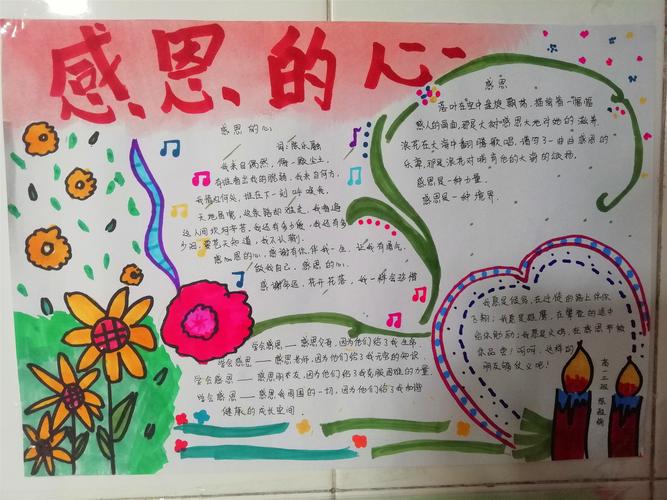 感恩的心
感恩的心
词:陈乐融
我来自偶然,像一颗尘土,
有谁看出我的脆弱,我来自何方,
我情归何处,谁在下一刻呼唤我,
天地虽宽,这条路却难走,我看遍
这人间坎坷辛苦,我还有多少爱,我还有多
少泪,要苍天知道,我不认输.
感恩的心,感谢有你伴我一生,让我有勇气,
做我自己.感恩的心.
感谢命运,花开花落,我一样会珍惜
学会感恩——感恩父母,因为他们给了我生命.
学会感恩——感恩老师,因为他们给了我无穷的知识
学会感恩——感恩朋友,因为他们给了我克服困难的力量.
学会感恩——感恩我周围的一切,因为他们给了我和谐
健康的成长空间.
感恩
落叶在空中盘旋,飘荡,描绘着一幅幅
感人的画面,那是大树感恩大地对她的滋养.
浪花在大海中翻腾歌唱,谱写了一曲曲感恩的
乐章,那是浪花对拥有他的大海的颂扬.
感恩是一种力量.
感恩是一种境界.
我愿是候鸟,在迁徙的路上伴你
飞翔;我愿是雄鹰,在攀登的途中
给你助力;我愿是火鸡,在感恩节被
你品尝!呵呵,这样的
朋友够仗义吧!
高一三班